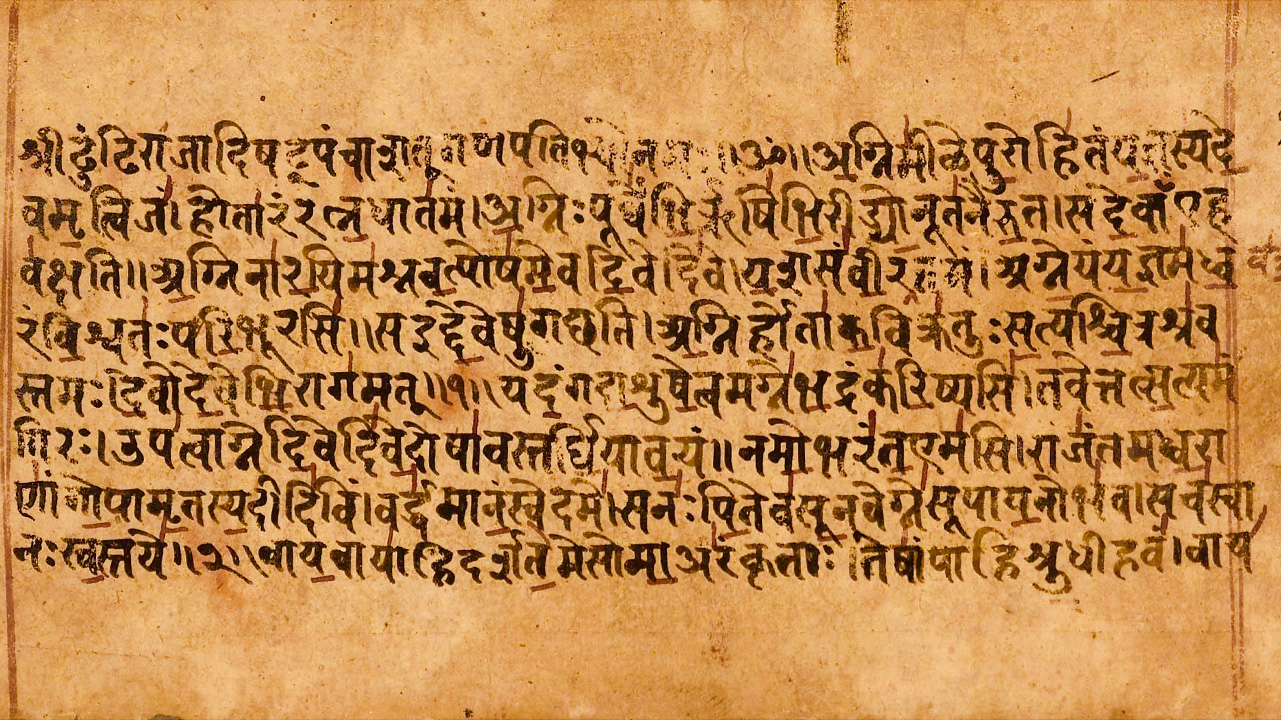 श्रीढुंढिराजादिषट्पंचाशत्गणपतिभ्योनमः॥ॐ॥अग्निमीळेपुरोहितंयज्ञस्यदे
वमृत्विजं।होतारंरत्नधातमं।अग्निःपूर्वेभिर्ऋषिभिरीड्योनूतनैरुत।सदेवाँएह
वक्षति॥अग्निनारयिमश्नवत्पोषमेवदिवेदिवे।यशसंवीरवत्तमं।अग्नेयंयज्ञमध्व
रंविश्वतःपरिभूरसि॥सइद्देवेषुगछति।अग्निर्होताकविक्रतुःसत्यश्चित्रश्रव
स्तमः।देवोदेवेभिरागमत्॥१॥यदंगदाशुषेत्वमग्नेभद्रंकरिष्यसि।तवेत्तत्सत्यमं
गिरः।उपत्वाग्नेदिवेदिवेदोषावस्तर्धियावयं॥नमोभरंतएमसि।राजंतमध्वरा
णांगोपामृतस्यदीदिविं।वर्द्धमानंस्वेदमे।सनःपितेवसूनवेग्नेसूपायनोभव।सचस्वा
नःस्वस्तये॥२॥वायवायाहिदर्शतेमेसोमाअरंकृताः।तेषांपाहिश्रुधीहवं।वाय